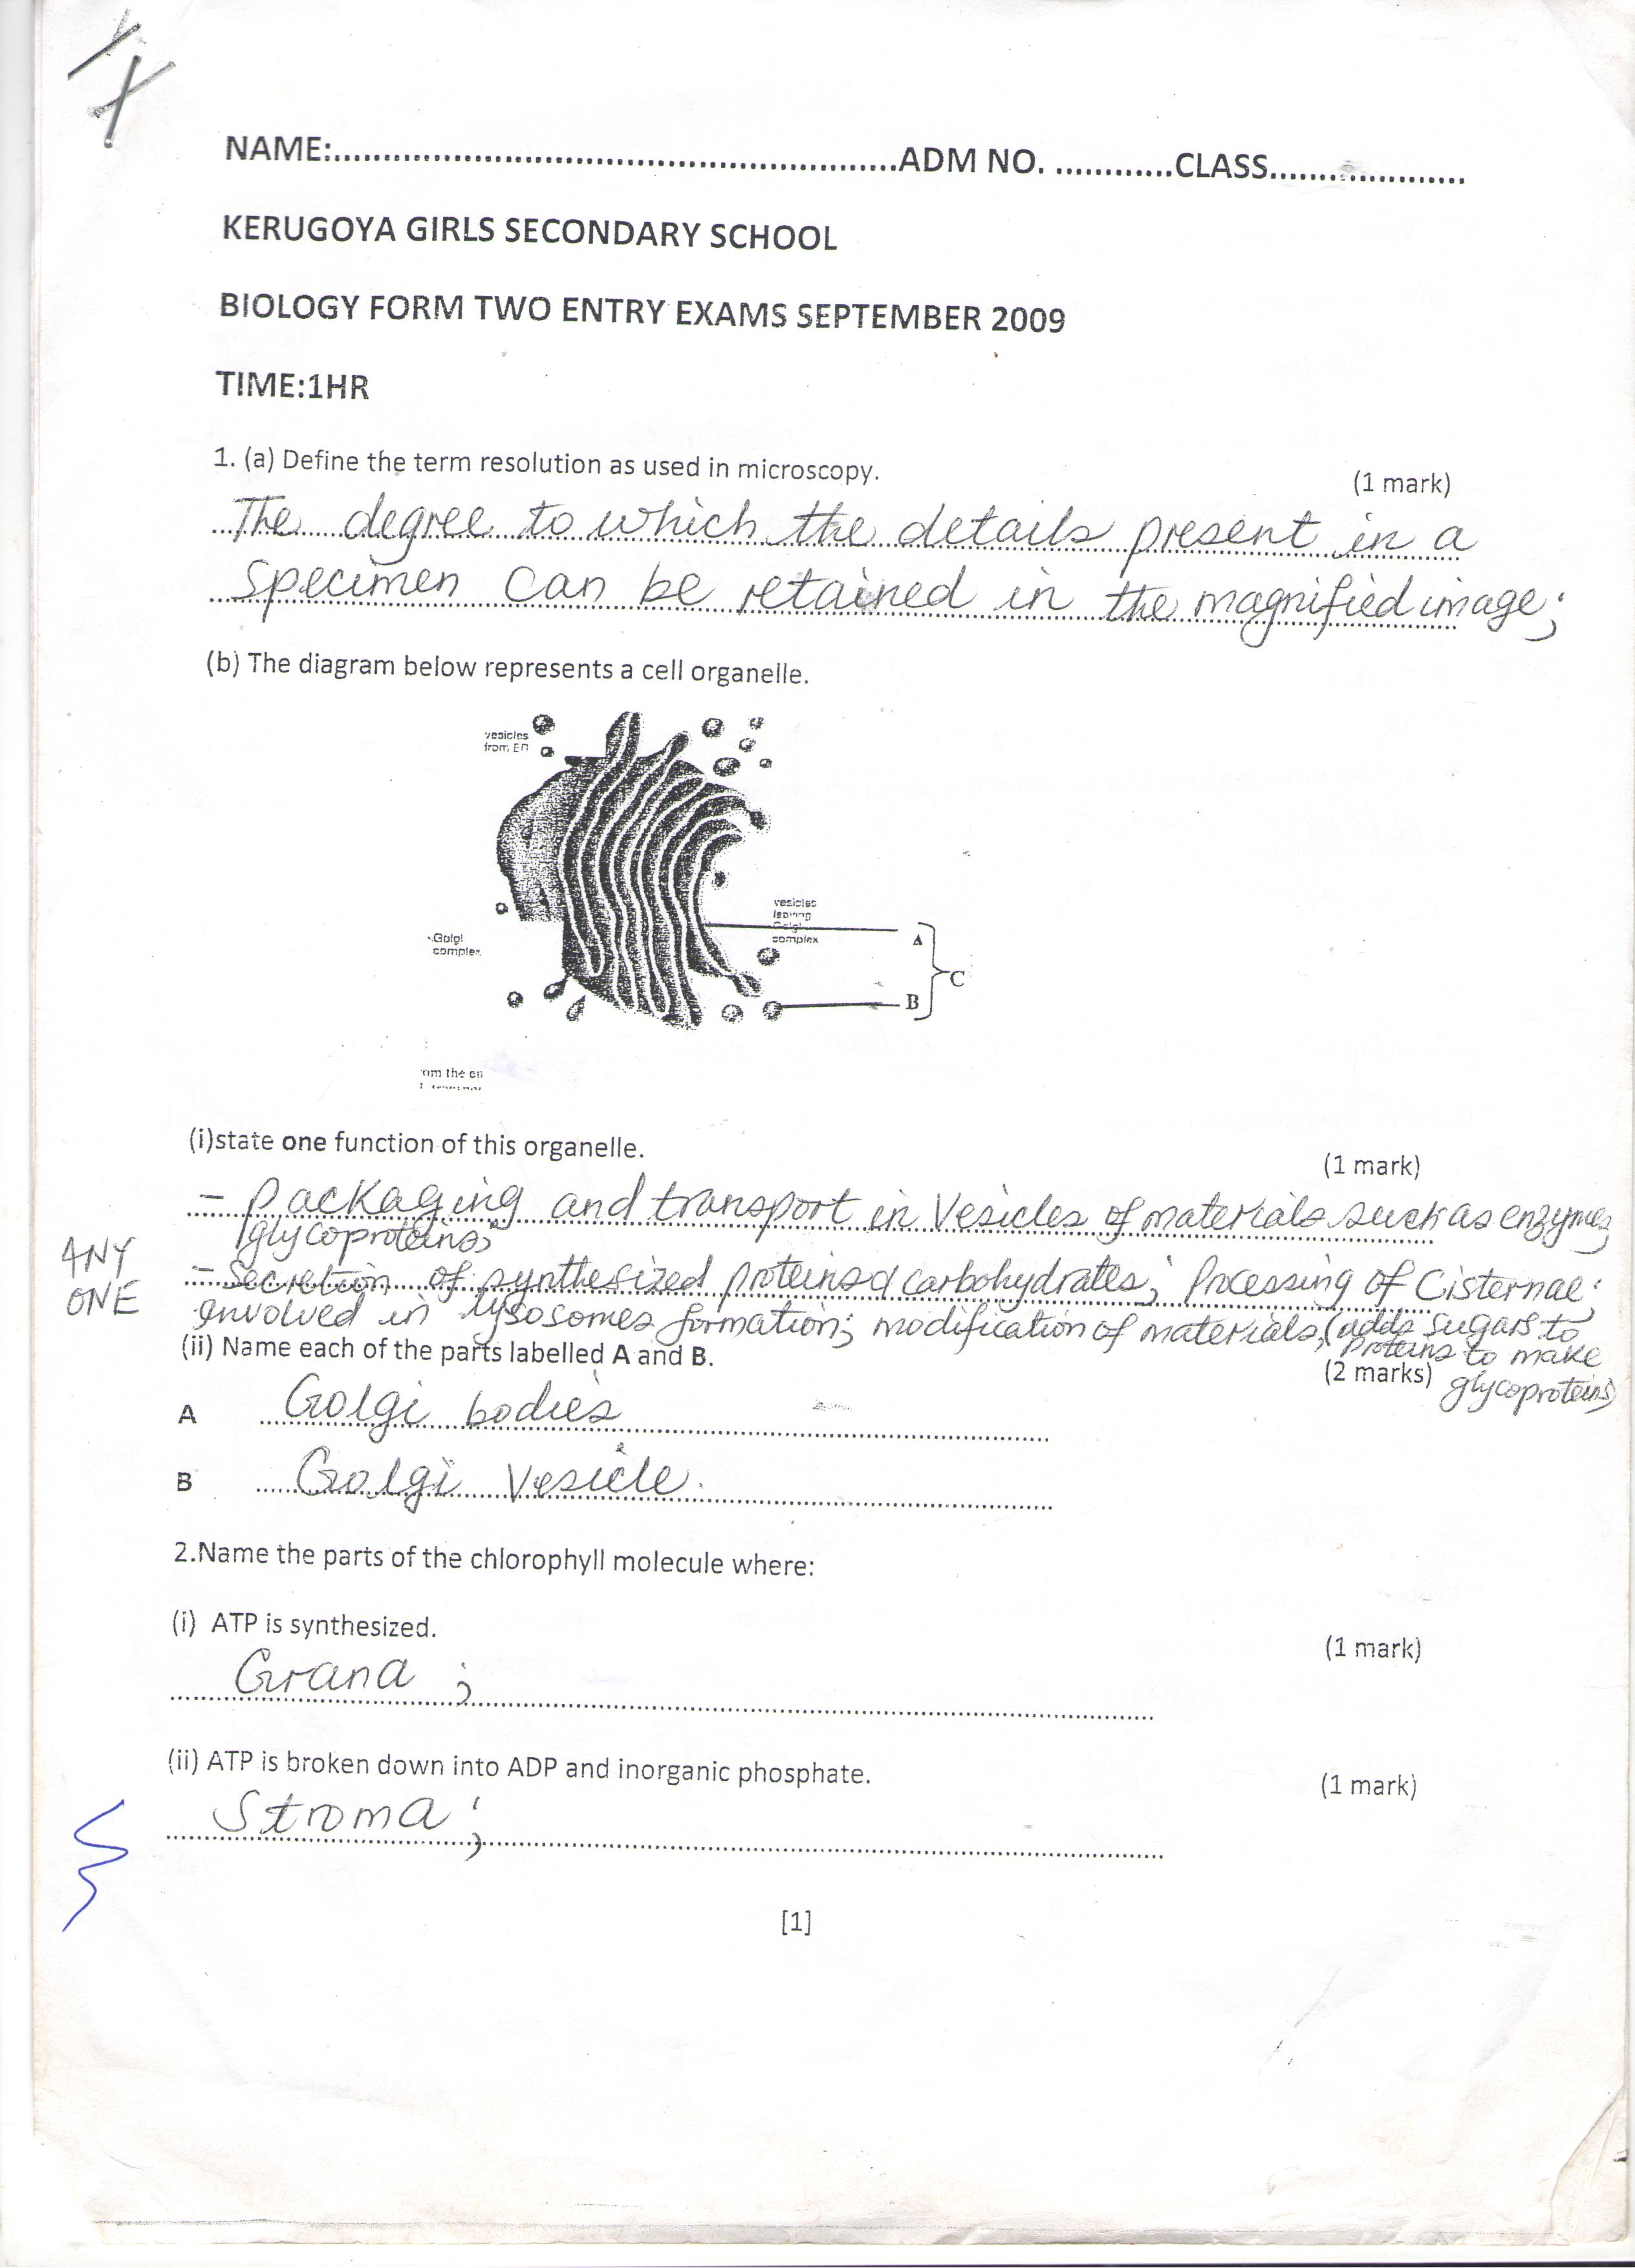 NAME:..........................................................ADM NO. ............CLASS....................
KERUGOYA GIRLS SECONDARY SCHOOL
BIOLOGY FORM TWO ENTRY EXAMS SEPTEMBER 2009
TIME:1HR
1. (a) Define the term resolution as used in microscopy. (1 mark)
The degree to which the details present in a
specimen can be retained in the magnified image;
(b) The diagram below represents a cell organelle.
vesicles
from ER
vesicles
leaving
Golgi
complex
Golgi
complex
A
B
C
om the en
(i)state one function of this organelle. (1 mark)
- Packaging and transport in Vesicles of materials such as enzymes,
glycoproteins;
ANY
ONE
- Secretion of synthesized proteins & carbohydrates; Processing of Cisternae;
involved in lysosomes formation; modification of materials, (adds sugars to
proteins to make
glycoproteins)
(ii) Name each of the parts labelled A and B. (2 marks)
A Golgi bodies
B Golgi Vesicle.
2.Name the parts of the chlorophyll molecule where:
(i) ATP is synthesized. (1 mark)
Grana ;
(ii) ATP is broken down into ADP and inorganic phosphate. (1 mark)
Stroma ;
[1]